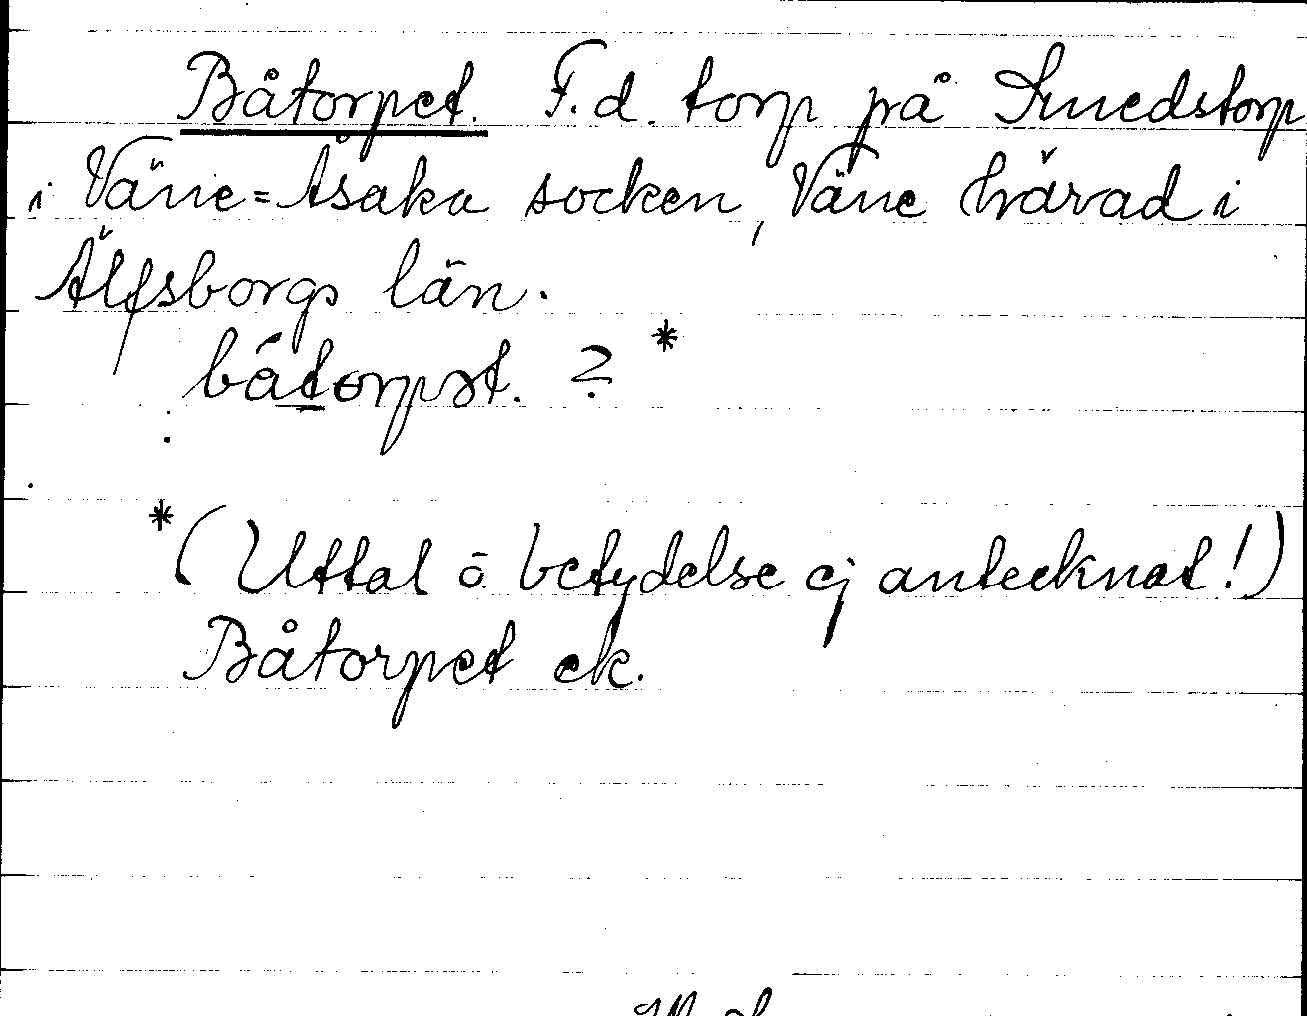 Båtorpet. F.d. torp på Smedstorp
i Väne=Åsaka socken, Väne härad i
Älfsborgs län.
båtorpət. ? *
*(Uttal o. betydelse ej antecknat!)
Båtorpet ek.